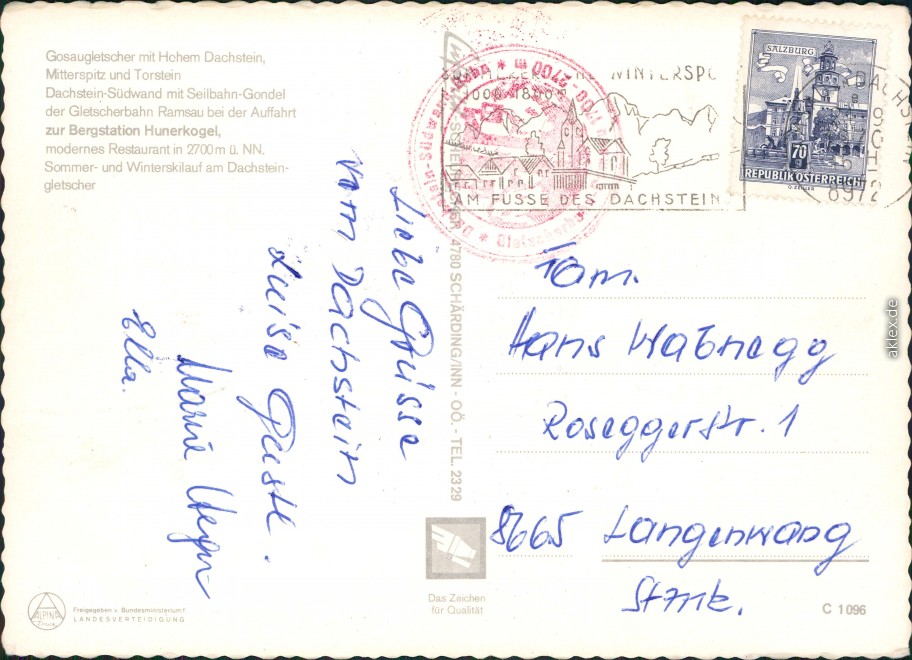 Gosaugletscher mit Hohem Dachstein,
Mitterspitz und Torstein
Dachstein-Südwand mit Seilbahn-Gondel
der Gletscherbahn Ramsau bei der Auffahrt
zur Bergstation Hunerkogel,
modernes Restaurant in 2700 m ü. NN.
Sommer- und Winterskilauf am Dachstein-
gletscher
Liebe Grüsse
vom Dachstein
Luise
Maria
Ella.
ALPINA
Freigegeben v. Bundesministerium f.
LANDESVERTEIDIGUNG
4780 SCHÄRDING/INN - OÖ. - TEL. 23 29
Das Zeichen
für Qualität
WINTERSPO
AM FUSSE DES DACHSTEIN
2700 m
SALZBURG
70 g
REPUBLIK ÖSTERREICH
8972
Fam.
Hans Wabnegg
Roseggerstr. 1
8665 Langenwang
Stmk.
C 1096
aklex.de